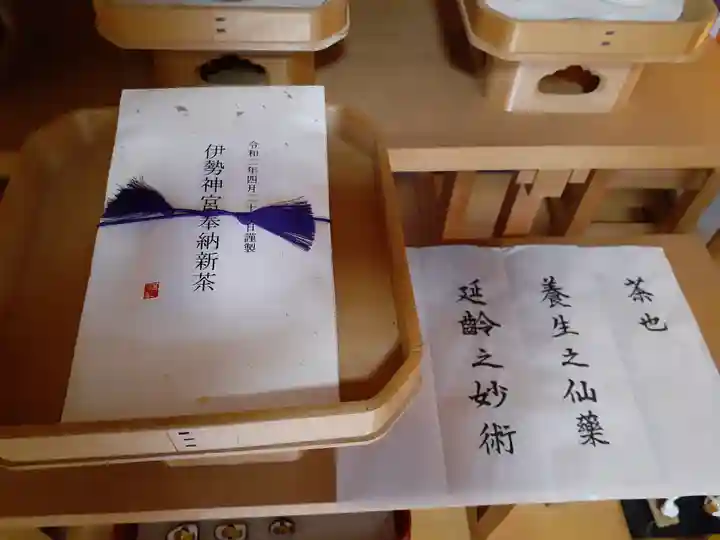 令和二年四月二十 日謹製
伊勢神宮奉納新茶
茶也
養生之仙藥
延齡之妙術